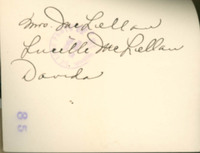 Mrs. MacLellan
Lucille McLellan
Davida
85